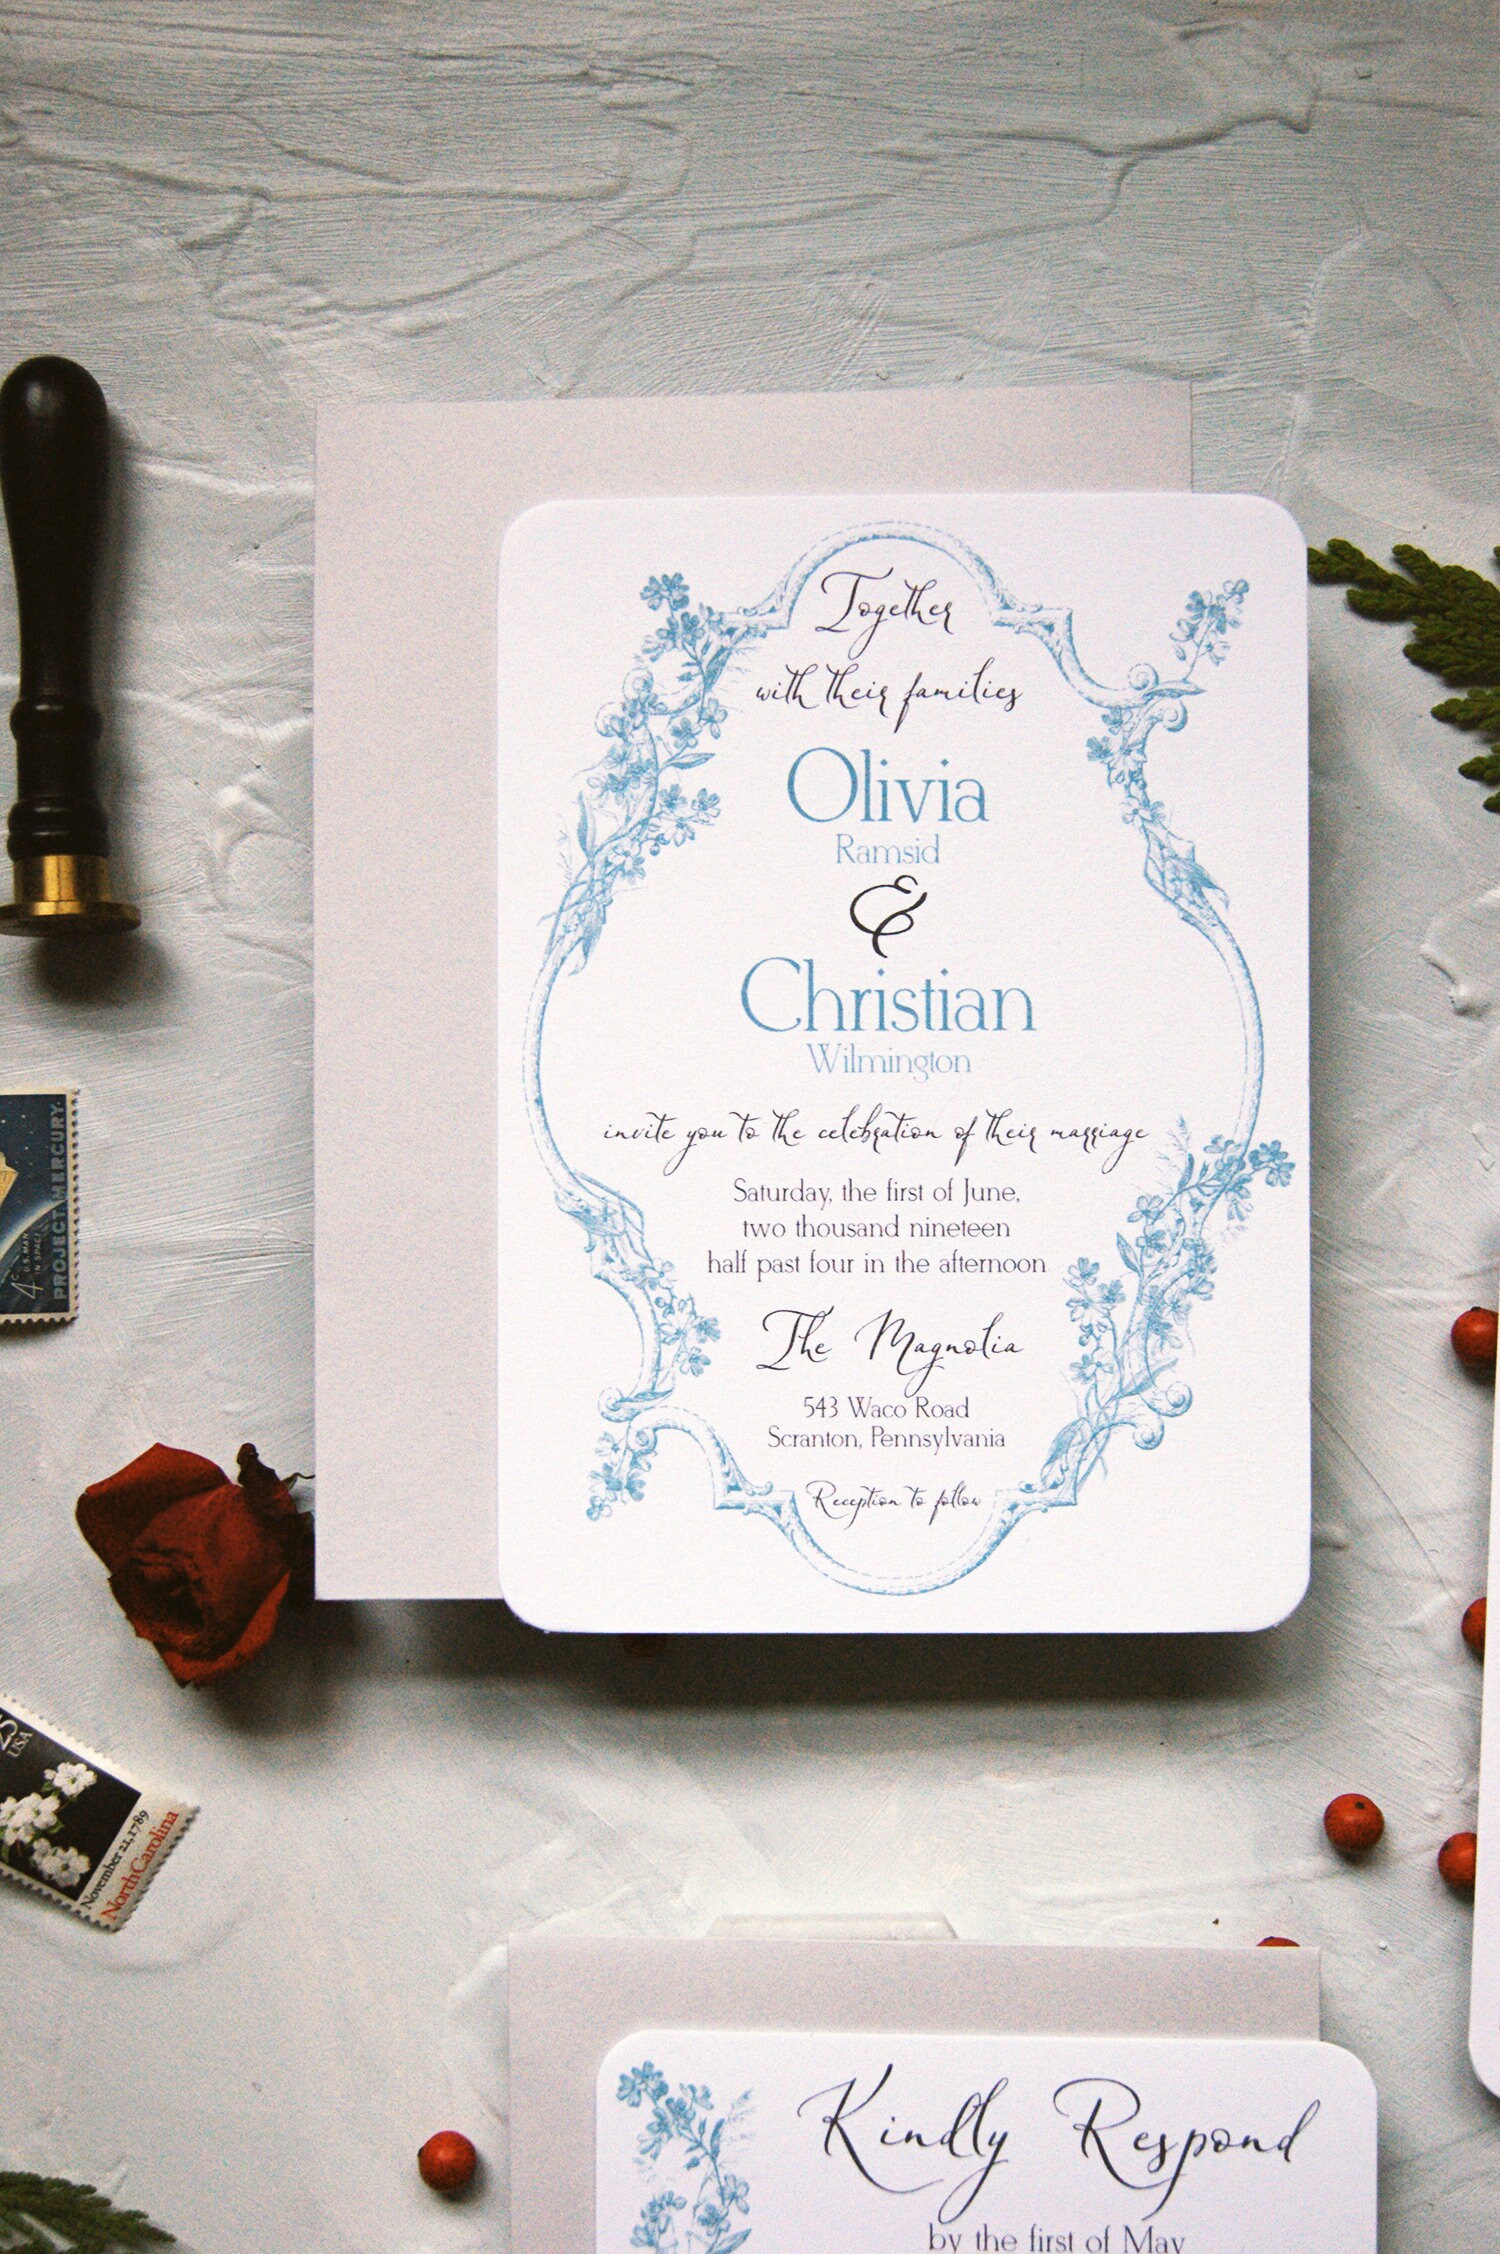 Together
with their families
Olivia
Ramsid
&
Christian
Wilmington
invite you to the celebration of their marriage
Saturday, the first of June,
two thousand nineteen
half past four in the afternoon
The Magnolia
543 Waco Road
Scranton, Pennsylvania
Reception to follow
PROJECT MERCURY
U.S. MAN
IN SPACE
4c
25
USA
November 21, 1789
North Carolina
Kindly Respond
by the first of May